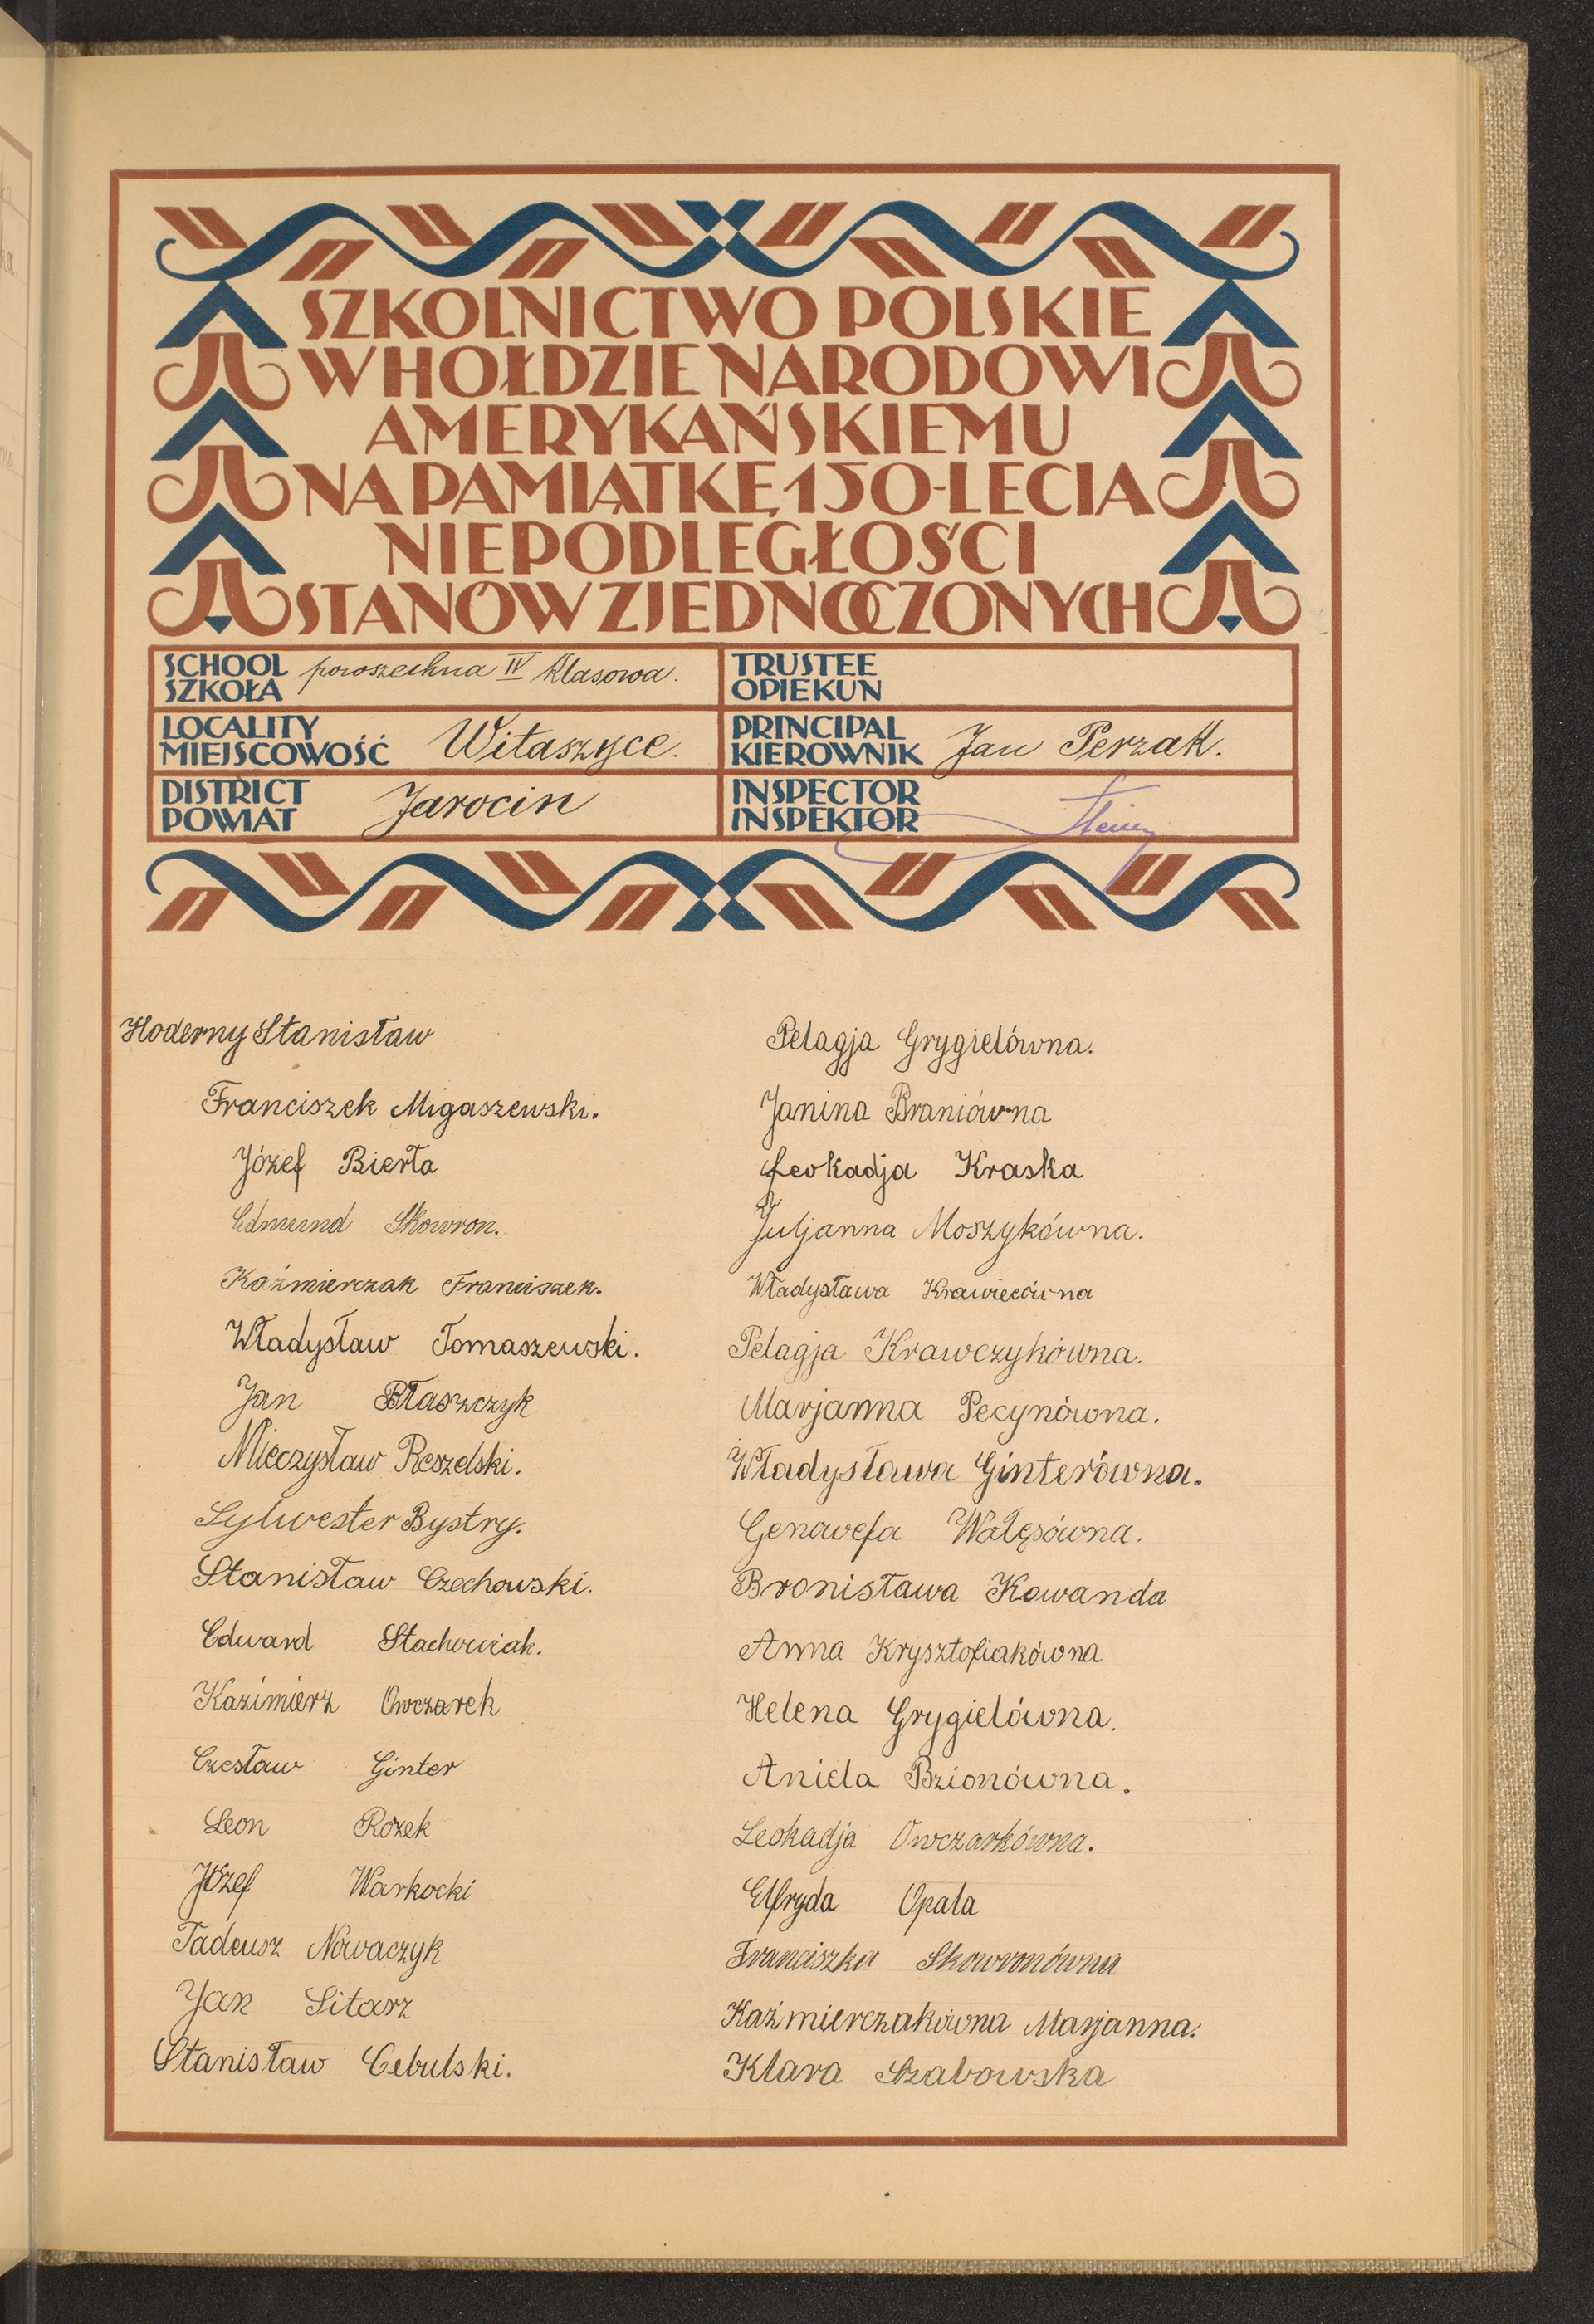 SZKOLNICTWO POLSKIE
W HOŁDZIE NARODOWI
AMERYKAŃSKIEMU
NA PAMIĄTKĘ 150-LECIA
NIEPODLEGŁOŚCI
STANÓW ZJEDNOCZONYCH
SCHOOL
SZKOŁA
powszechna IV klasowa.
TRUSTEE
OPIEKUN
LOCALITY
MIEJSCOWOŚĆ
Witaszyce.
PRINCIPAL
KIEROWNIK
Jan Perzak.
DISTRICT
POWIAT
Jarocin
INSPECTOR
INSPEKTOR
Hoderny Stanisław
Franciszek Migaszewski.
Józef Bierła
Edmund Skowron.
Kaźmierczak Franciszek.
Władysław Tomaszewski.
Jan Błaszczyk
Mieczysław Reszelski.
Sylwester Bystry.
Stanisław Czechowski.
Edward Stachowiak.
Kazimierz Owczarek
Czesław Ginter
Leon Rożek
Józef Warkocki
Tadeusz Nowaczyk
Jan Sitarz
Stanisław Cebulski.
Pelagja Grygielówna.
Janina Braniówna
Leokadja Kraska
Juljanna Moszykówna.
Władysława Krawiecówna
Pelagja Krawczykówna.
Marjanna Pecynówna.
Władysława Ginterówna.
Genowefa Wałęsówna.
Bronisława Kowanda
Anna Krysztofiakówna
Helena Grygielówna.
Aniela Bzionówna.
Leokadja Owczarkówna.
Elfryda Opala
Franciszka Skowronówna
Kaźmierczakówna Marjanna.
Klara Szabowska